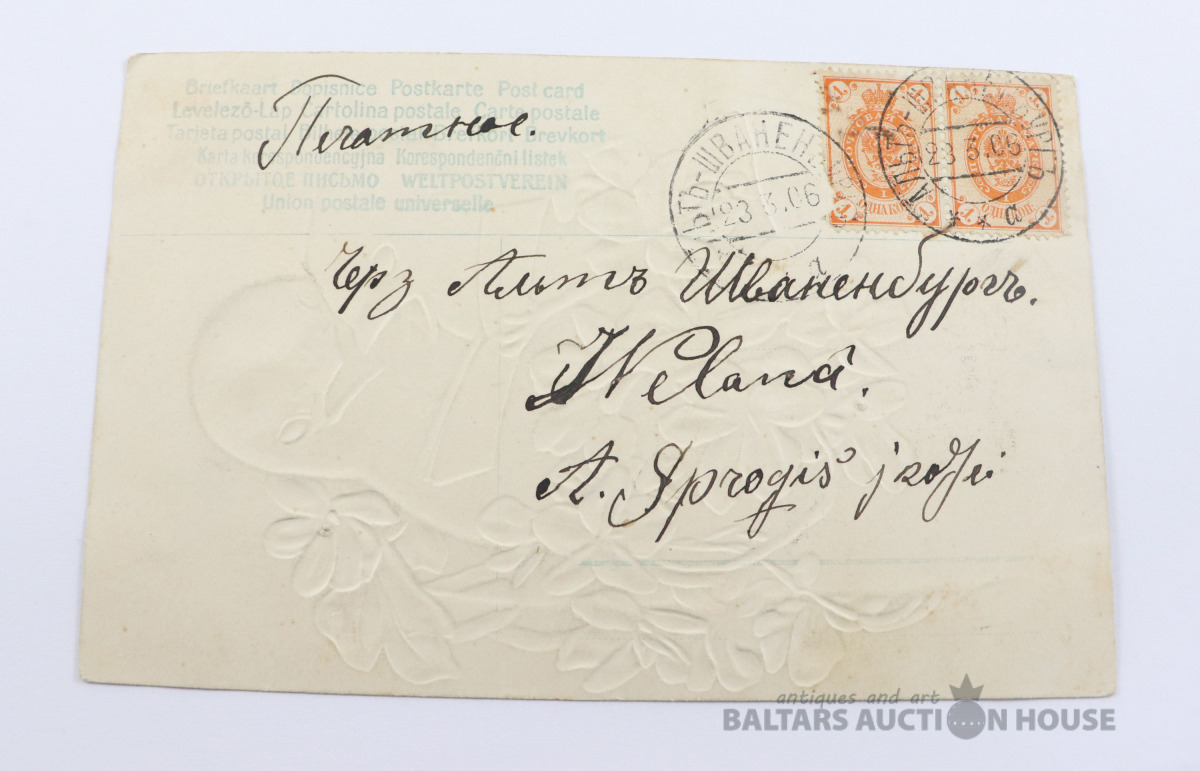 Briefkaart Dopisnice Postkarte Post card
Levelező-Lap Cartolina postale Carte postale
Tarjeta postal Brefkort Brevkort
Karta korespondencyjna Korespondenční listek
ОТКРЫТОЕ ПИСЬМО WELTPOSTVEREIN
Union postale universelle
Печатное.
ЛЬТЪ-ШВАНЕН
23 3.06
23 3.06
а
Черз Альтъ Шваненбургъ.
Welanâ.
A. Sprogis
antiques and art
BALTARS AUCTION HOUSE